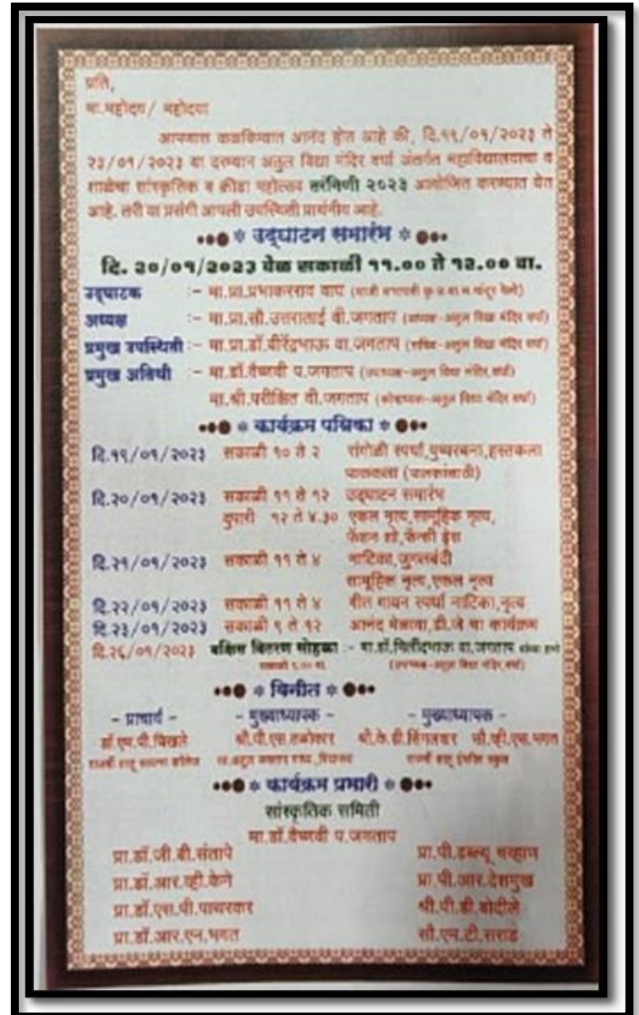 प्रति,
मा.महोदय/ महोदया
आपणास कळविण्यात आनंद होत आहे की, दि.१९/०१/२०२३ ते
२३/०१/२०२३ या दरम्यान अतुल विद्या मंदिर वर्धा अंतर्गत महाविद्यालयाचा व
शाळेचा सांस्कृतिक व क्रीडा महोत्सव तरंगिणी २०२३ आयोजित करण्यात येत
आहे. तरी या प्रसंगी आपली उपस्थिती प्रार्थनीय आहे.
उद्घाटन समारंभ
दि. २०/०१/२०२३ वेळ सकाळी ११.०० ते १२.०० वा.
उद्घाटक :- मा.प्रा.प्रभाकरराव वाघ
अध्यक्ष :- मा.प्रा.सौ.उत्तराताई वी.जगताप (अध्यक्ष-अतुल विद्या मंदिर वर्धा)
प्रमुख उपस्थिती :- मा.प्रा.डॉ.वीरेंद्रभाऊ वा.जगताप (सचिव-अतुल विद्या मंदिर वर्धा)
प्रमुख अतिथी :- मा.डॉ.वैष्णवी प.जगताप (उपाध्यक्ष-अतुल विद्या मंदिर वर्धा)
मा.श्री.परीक्षित वी.जगताप (कोषाध्यक्ष-अतुल विद्या मंदिर वर्धा)
कार्यक्रम पत्रिका
दि.१९/०१/२०२३ सकाळी १० ते २ रांगोळी स्पर्धा,पुष्परचना,हस्तकला
पाककला (पालकांसाठी)
दि.२०/०१/२०२३ सकाळी ११ ते १२ उद्घाटन समारंभ
दुपारी १२ ते ४.३० एकल नृत्य,सामूहिक नृत्य,
फॅशन शो,फॅन्सी ड्रेस
दि.२१/०१/२०२३ सकाळी ११ ते ४ नाटिका,जुगलबंदी
सामूहिक नृत्य,एकल नृत्य
दि.२२/०१/२०२३ सकाळी ११ ते ४ गीत गायन स्पर्धा नाटिका,नृत्य
दि.२३/०१/२०२३ सकाळी ९ ते १२ आनंद मेळावा,डी.जे चा कार्यक्रम
दि.२६/०१/२०२३ बक्षिस वितरण सोहळा :- मा.डॉ.मिलींदभाऊ वा.जगताप
सकाळी ९.०० वा. (उपाध्यक्ष-अतुल विद्या मंदिर वर्धा)
विनीत
- प्राचार्य - - मुख्याध्यापक - - मुख्याध्यापक -
डॉ.एम.पी.चिखले श्री.पी.एस.तळोकार श्री.के.डी.सिंगलवार सौ.व्ही.एस.भगत
कार्यक्रम प्रभारी
सांस्कृतिक समिती
मा.डॉ.वैष्णवी प.जगताप
प्रा.डॉ.जी.बी.संतापे प्रा.पी.डब्ल्यू चव्हाण
प्रा.डॉ.आर.व्ही.केने प्रा.पी.आर.देशमुख
प्रा.डॉ.एस.पी.पाथरकर श्री.पी.डी.बोदीले
प्रा.डॉ.आर.एन.भगत सौ.एम.टी.सराड